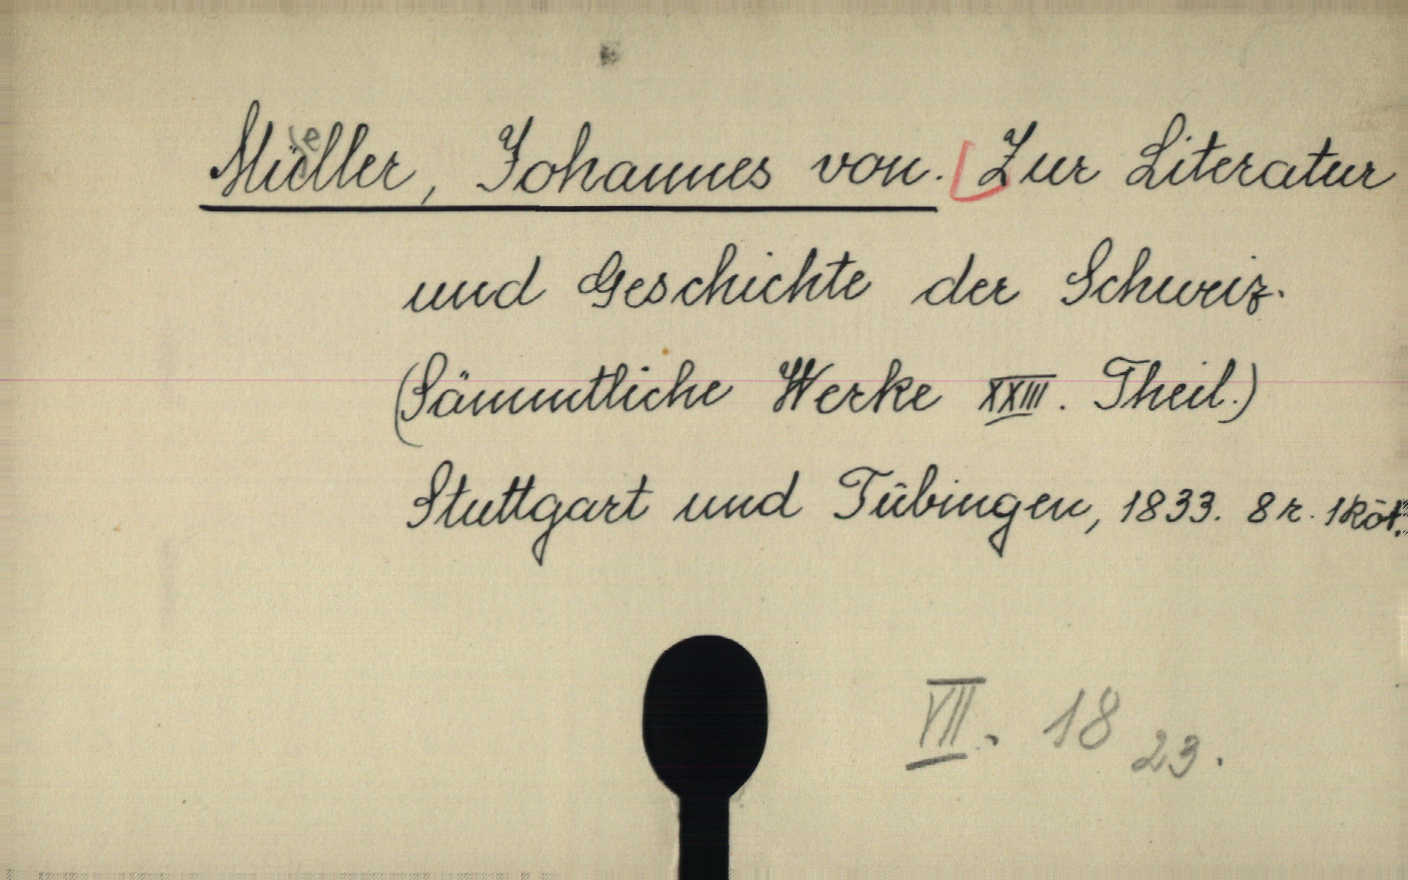 Müller, Johannes von. Zur Literatur
und Geschichte der Schweiz.
(Sämmtliche Werke XXIII. Theil.)
Stuttgart und Tübingen, 1833. 8r. 1 köt.
VII. 18 23.